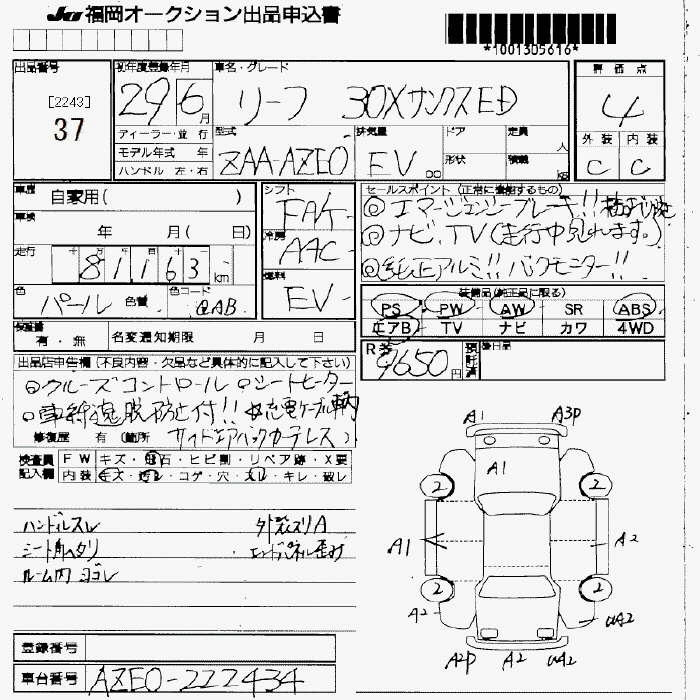 JU 福岡オークション出品申込書
*1001305616*
出品番号 初年度登録年月 車名・グレード 評価点
[2243]
37
29 6月 リーフ 30X サンクスED 4
ディーラー・並行 型式 排気量 ドア 定員 人 外装 内装
モデル年式 年 ZAA-AZEO EV cc 形状 積載 kg C C
ハンドル 左・右
車歴 自家用( ) シフト FAT セールスポイント (正常に機能するもの)
車検 年 月( 日) 冷房 AAC ◎エマージェンシーブレーキ!!
走行 81163 km 燃料 EV ◎ナビ、TV(走行中見れます。)
色 パール 色替 色コード QAB ◎純正アルミ!! バックモニター!!
装備品(純正品に限る)
PS PW AW SR ABS
エアB TV ナビ カワ 4WD
検査書 有・無 名変通知期限 月 日
R券 9650円 預託済 後日品
出品店申告欄 (不良内容・欠品など具体的に記入して下さい)
◎クルーズコントロール ◎シートヒーター
◎車線逸脱防止付!! 充電ケーブル
修復歴 有 (箇所 サイドエアバックカーテンレス)
検査員記入欄 FW キズ・飛石・ヒビ割・リペア跡・X要
内装 キズ・汚レ・コゲ・穴・スレ・キレ・破レ
ハンドルスレ 外装スリA
シート角ヘタリ エンドパネル歪み
ルーム内ヨゴレ
A1 A3P
A1
2 2
A1 A2
2 2
A2 UA2
A2P A2 UA2
登録番号
車台番号 AZEO-222434